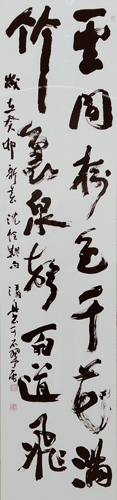 雲間樹色千花滿
竹裏泉聲百道飛
歲在癸卯新春沈佺期句清